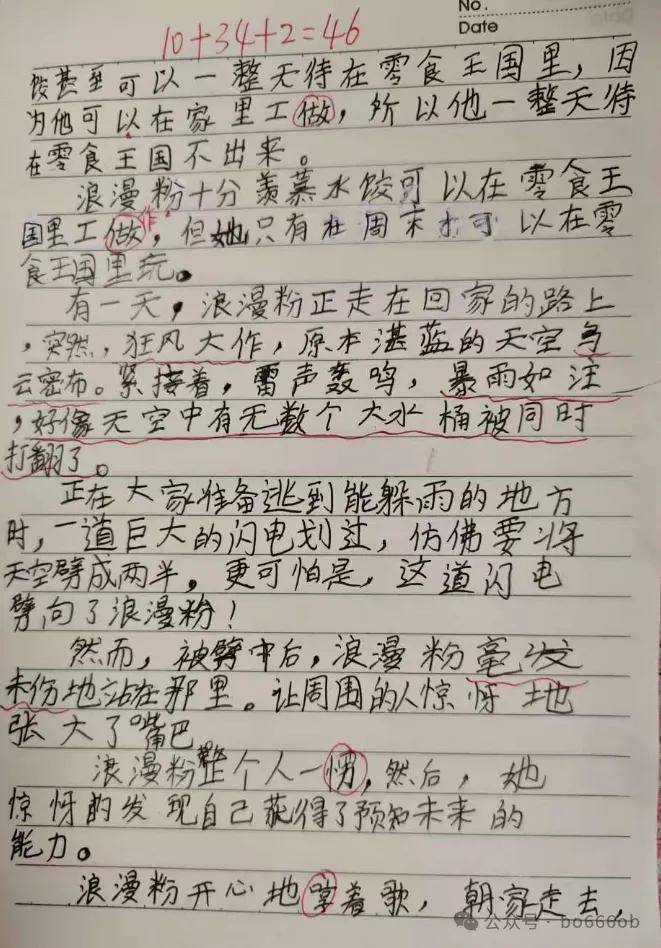 No.
Date
10+34+2=46
饺甚至可以一整天待在零食王国里，因
为他可以在家里工做，所以他一整天待
在零食王国不出来。
浪漫粉十分羡慕水饺可以在零食王
国里工做，但她只有在周末才可以在零
作
食王国里玩。
有一天，浪漫粉正走在回家的路上
，突然，狂风大作，原本湛蓝的天空乌
云密布。紧接着，雷声轰鸣，暴雨如注
，好像天空中有无数个大水桶被同时
打翻了。
正在大家准备逃到能躲雨的地方
时，一道巨大的闪电划过，仿佛要将
天空劈成两半。更可怕是，这道闪电
劈向了浪漫粉！
然而，被劈中后，浪漫粉毫发
未伤地站在那里。让周围的人惊讶地
张大了嘴巴
浪漫粉整个人一愣，然后，她
惊讶的发现自己获得了预知未来的
能力。
浪漫粉开心地哼着歌，朝家走去，
公众号·bo666ob